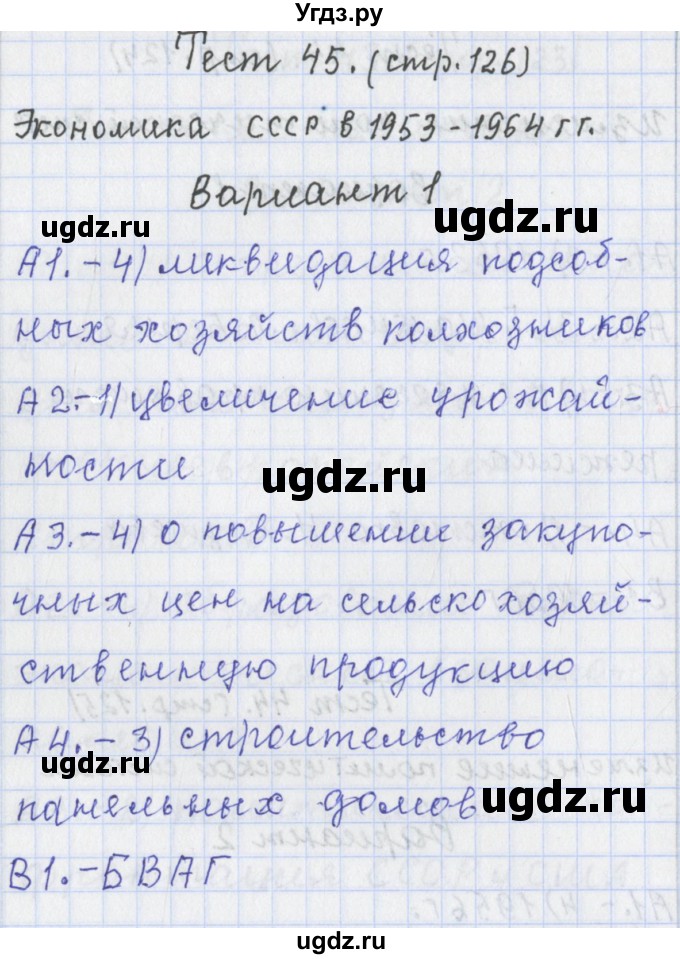 Угдз.ру
Тест 45. (стр. 126)
Экономика СССР в 1953-1964 гг.
Вариант 1
ugdz.ru
ugdz.ru
А1. - 4) ликвидация подсоб-
ных хозяйств колхозников
ugdz.ru
А2.-1) увеличение урожай-
ности
ugdz.ru
А3. - 4) о повышении закупо-
чных цен на сельскохозяй-
ственную продукцию
А4. - 3) строительство
ugdz.ru
панельных домов
ugdz.ru
В1. - БВАГ
ugdz.ru
ugdz.ru